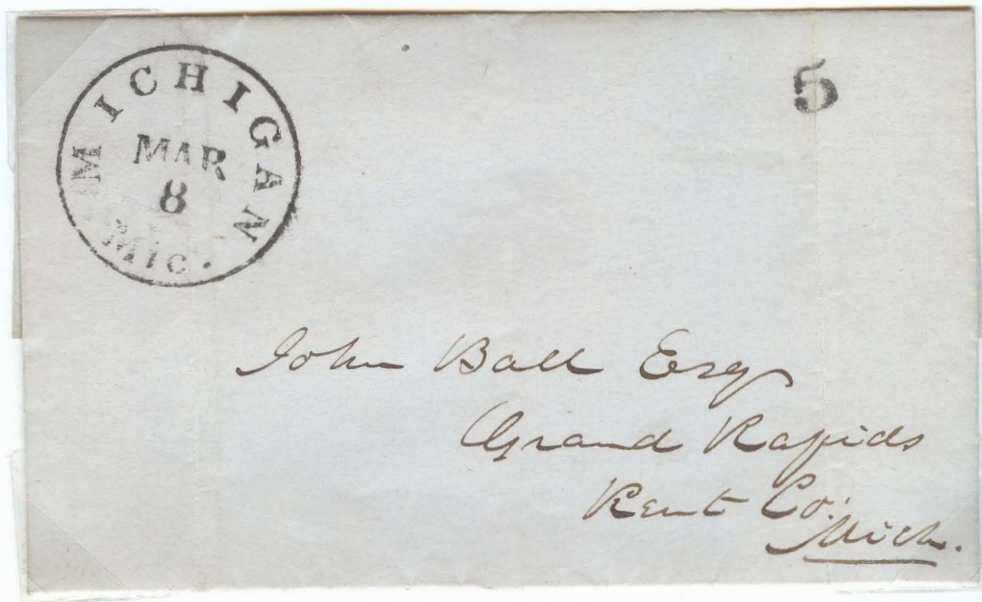 MICHIGAN
MAR
8
MIC.
5
John Ball Esq
Grand Rapids
Kent Co.
Mich.